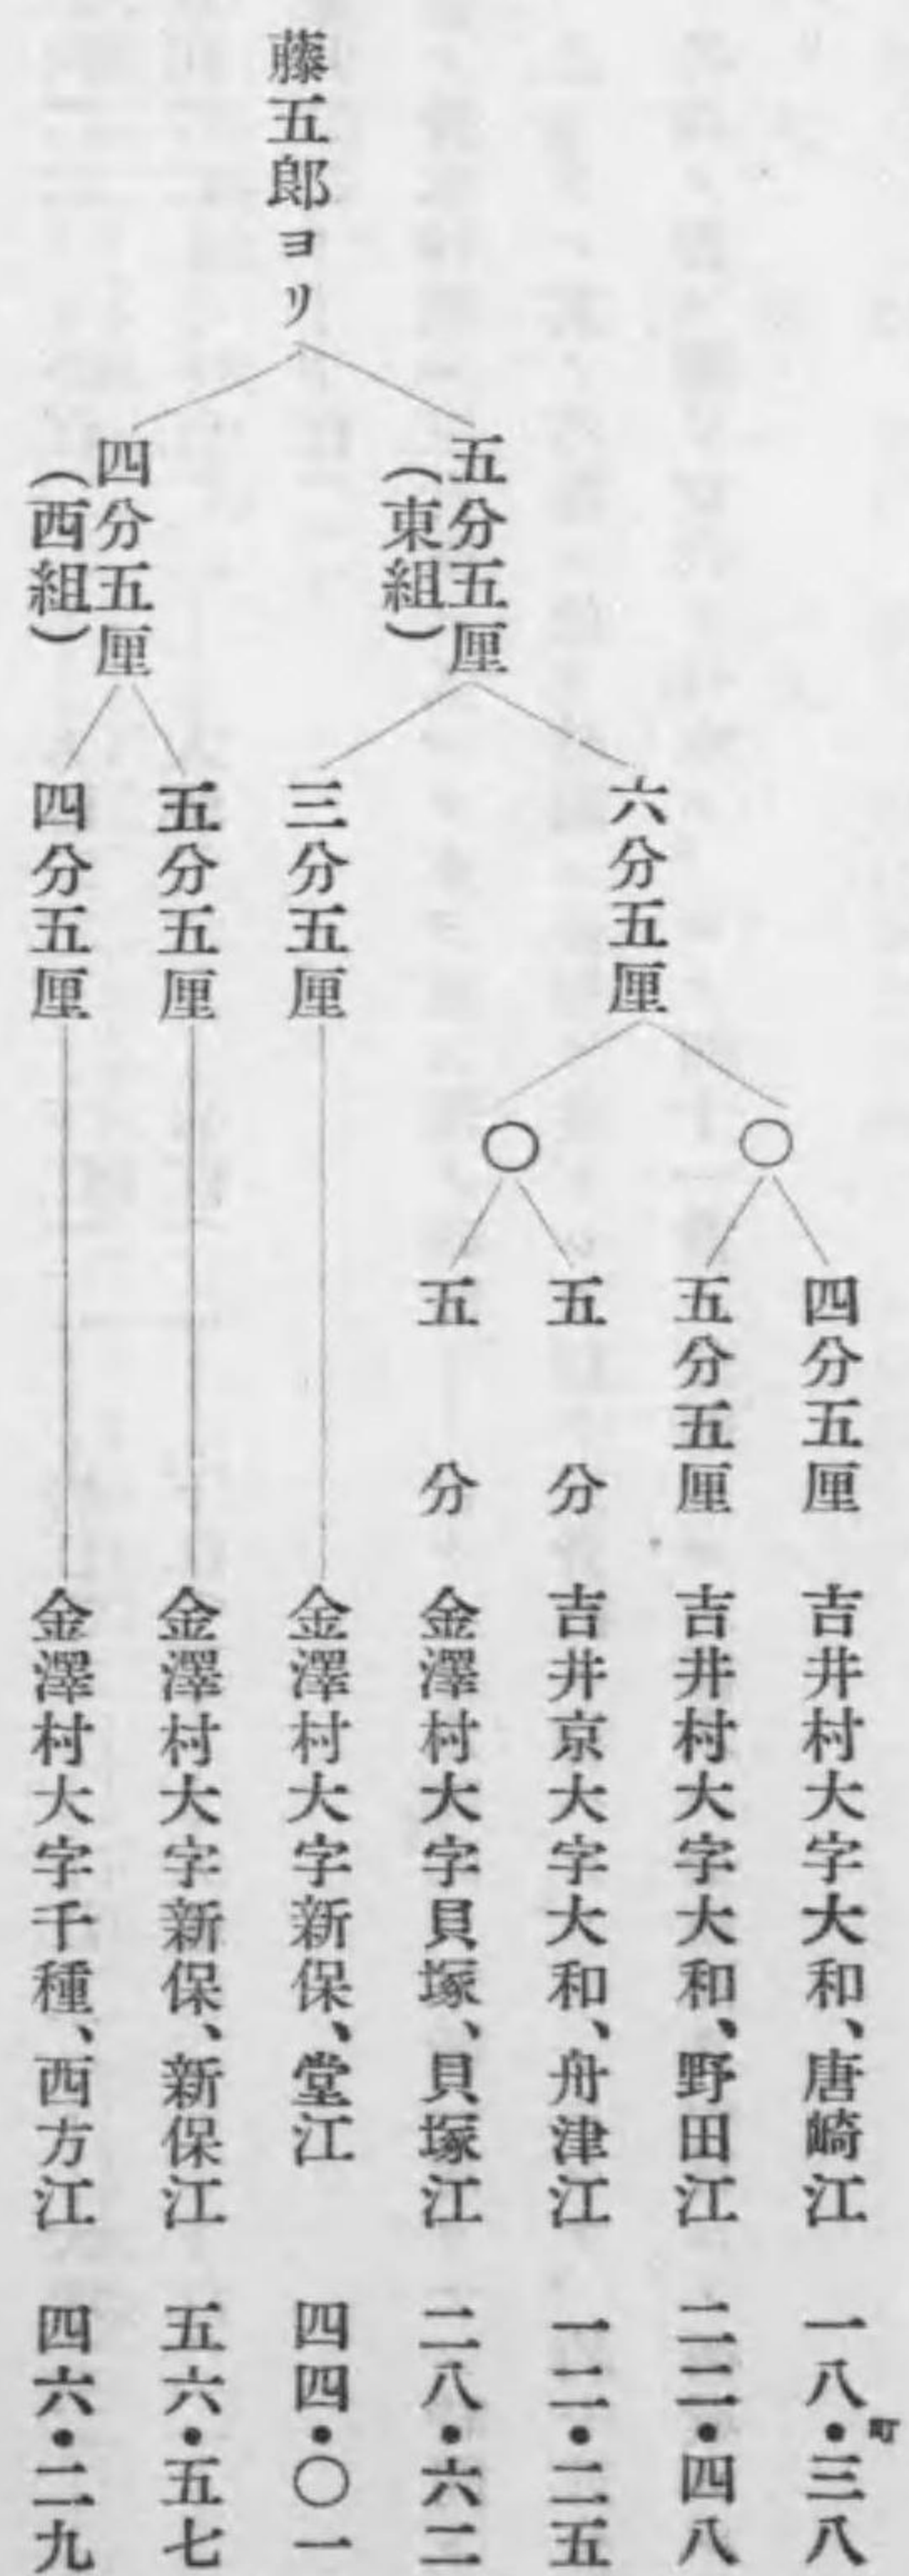 藤五郎ヨリ
五分五厘
(東組)
四分五厘
(西組)
六分五厘
三分五厘
五分五厘
四分五厘
○
○
四分五厘 吉井村大字大和、唐崎江 一八・三八
町
五分五厘 吉井村大字大和、野田江 二二・四八
五分 吉井京大字大和、舟津江 一二・二五
五分 金澤村大字貝塚、貝塚江 二八・六二
金澤村大字新保、堂江 四四・〇一
金澤村大字新保、新保江 五六・五七
金澤村大字千種、西方江 四六・二九